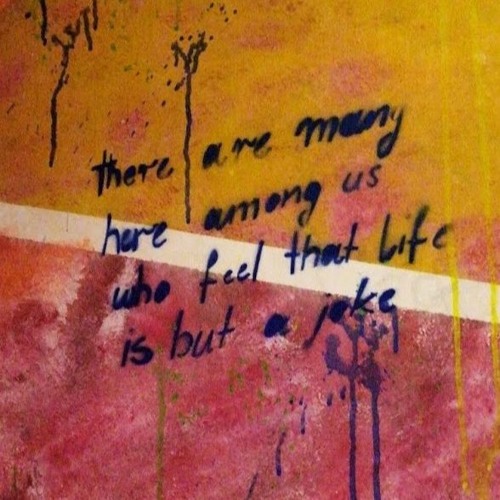 there are many
here among us
who feel that life
is but a joke